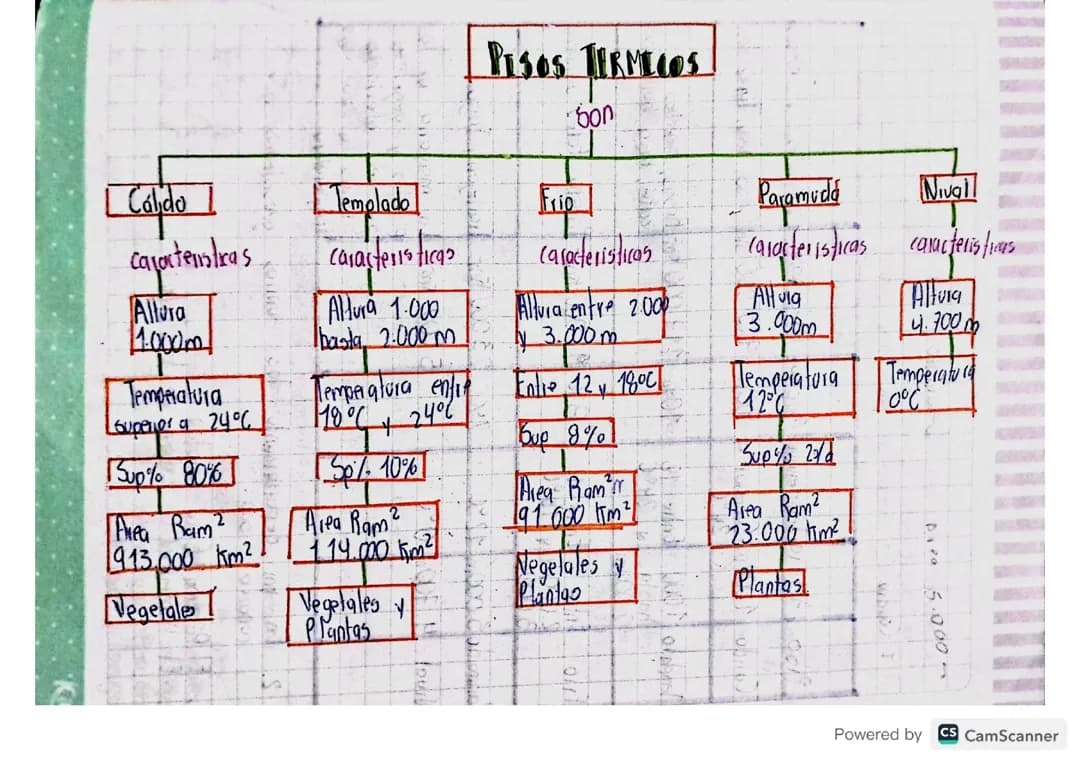 PISOS TERMICOS
son
Cálido
Templado
Frio
Paramuda
Nival
características
características
características
características
características
Altura
1.000m
Altura 1.000
hasta 2.000 m
Altura entre 2.000
y 3.000 m
Altura
3.000m
Altura
4.700 m
Temperatura
superior a 24°C
Temperatura entre
18°C y 24°C
Entre 12 y 18°C
Temperatura
12°C
Temperatura
0°C
Sup% 80%
Sp% 10%
Sup 8%
Sup%
Area Ram²
913,000 Km²
Area Ram²
114.000 Km²
Area Ram²
91.000 Km²
Area Ram²
23.000 Km²
Vegetales
Vegetales y
Plantas
Vegetales y
Plantas
Plantas
5.000
Powered by CS CamScanner